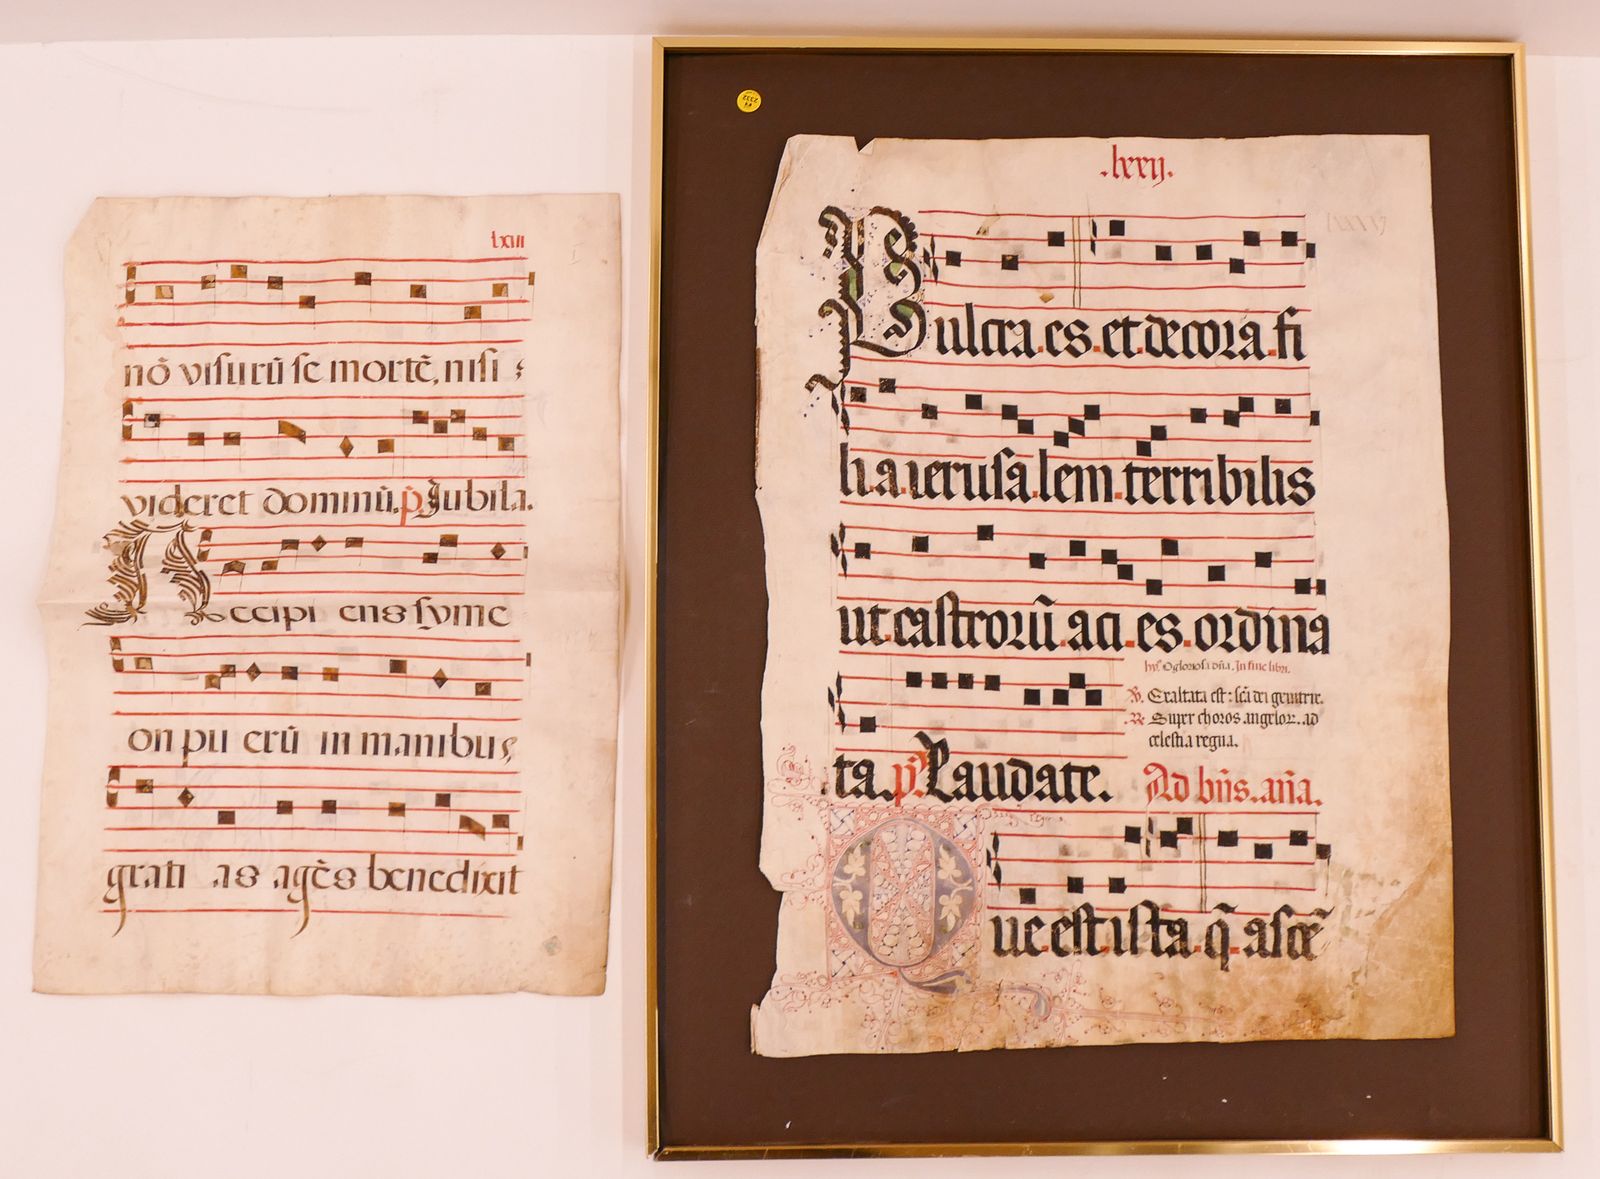 lxiii
nō visurū se mortē, nisi
videret dominū. p̄. Jubila.
Accipi ens syme
on pu erū in manibus,
grati as agēs benedixit
.lxxij.
Pulcra.es.et.decora.fi
li.a.ierusa.lem.terribilis
ut.castrorū.aci.es.ordina
hy. O gloriosa dn̄a. In fine libri.
℣. Exaltata est: sc̄a dei genitrix.
.℟. Super choros angeloꝝ. ad
celestia regna.
ta. p̄. Laudate. Ad bn̄s. an̄a.
Que.est.ista.q̄.ascē